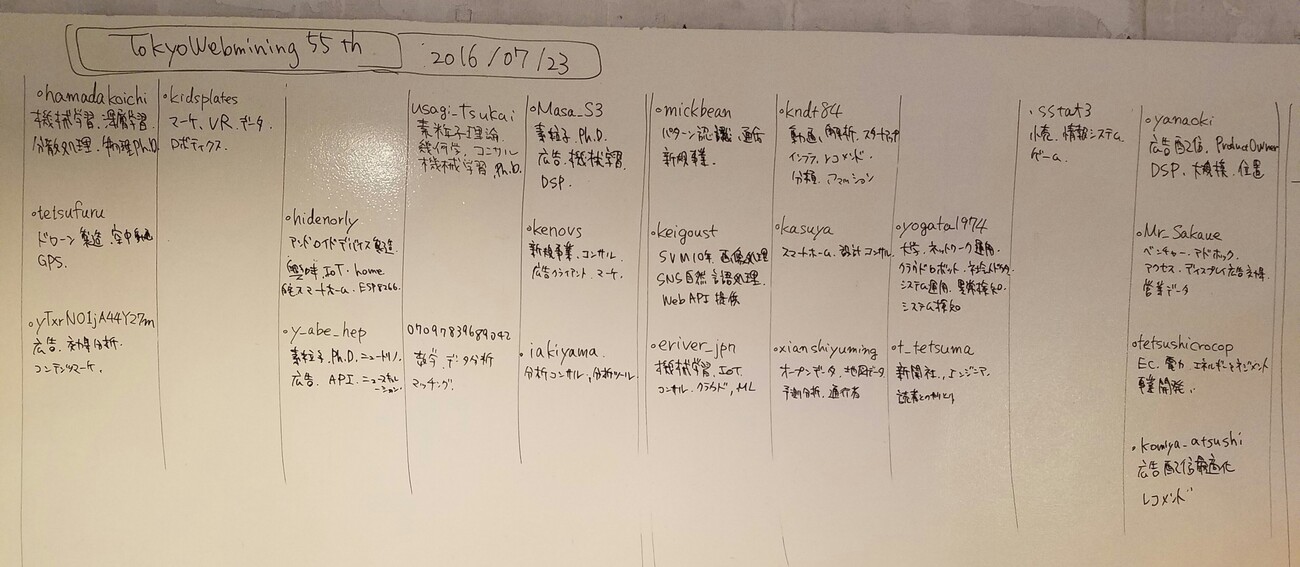 TokyoWebmining 55th
2016/07/23
hamadakoichi
機械学習.深層学習.
分散処理.物理Ph.D
tetsufuru
ドローン製造.空中
GPS.
yTxrNO1jA44Y27m
広告.効果分析.
コンテンツマーケ.
kidsplates
マーケ、VR.データ.
ロボティクス.
hidenorly
アンドロイドデバイス製造.
興味 IoT.home.
スマートホーム.ESP8266.
y_abe_hep
素粒子.Ph.D.ニュートリノ.
広告.API.
usagi_tsukai
素粒子理論.
幾何学.コンサル
機械学習.Ph.D.
07097839689042
数学.データ分析
マッチング.
Masa_S3
素粒子.Ph.D.
広告.機械学習.
DSP.
kenovs
新規事業.コンサル.
広告クライアント.マーケ.
iakiyama.
分析コンサル,分析ツール.
mickbean
パターン認識、通信
新規事業.
keigoust
SVM10年.画像処理
SNS自然言語処理.
WebAPI提供
eriver_jpn
機械学習.IoT.
コンサル.クラウド,ML
kndt84
動画.解析.スタートアップ
インフラ.レコメンド.
分類.ファッション
kasuya
スマートホーム.設計コンサル.
xianshiyuming
オープンデータ.地図データ
予測分析.通行者
yogata1974
大学.ネットワーク運用.
クラウドロボット.
システム運用.異常検知.
システム検知
t_tetsuma
新聞社.,エンジニア.
読者とのやりとり
.sstat3
小売.情報システム
ゲーム.
yanaoki
広告配信.ProductOwner
DSP、大規模.位置
Mr_Sakaue
ベンチャー.アドホック.
アクセス.ディスプレイ広告
営業データ
tetsushicrocop
EC.電力.エネルギーマネジメント
事業開発.
komiya_atsushi
広告配信最適化
レコメンド